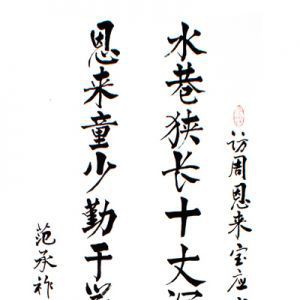 访周恩来宝应
水巷狭长十丈深
恩来童少勤于学
范承祚